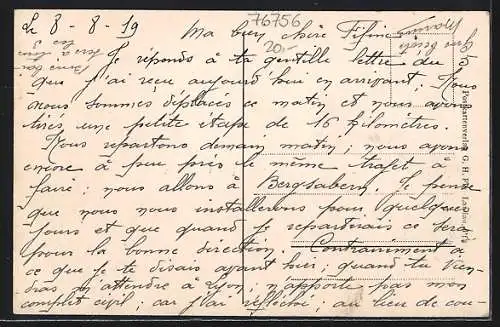 Le 8 - 8 - 19
76756
20,-
Ma bien chère Fifine
Je réponds à ta gentille lettre du 5
que j'ai reçue aujourd'hui en arrivant. Nous
nous sommes déplacés ce matin et nous avons
tirés une petite étape de 16 kilomètres.
Nous repartons demain matin; nous avons
encore à peu près le même trajet à
faire; nous allons à Bergzabern. Je pense
que nous nous installerons pour quelques
jours et que quand je repartirais ce sera
pour la bonne direction. Contrairement à
ce que je te disais avant hier, quand tu vien-
dras m'attendre à Lyon, n'apporte pas mon
complet civil; car j'ai réfléchi, au lieu de cou-
Postkartenverlag G. H.